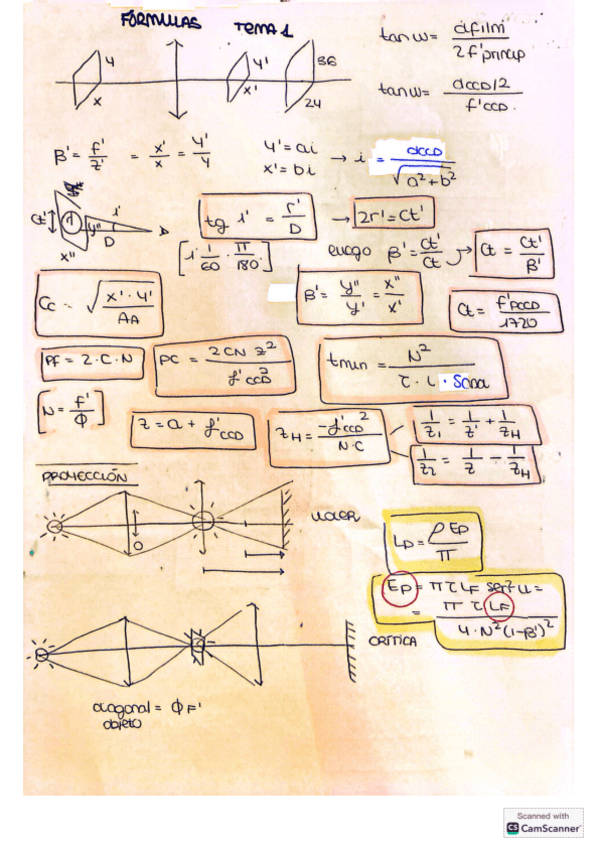 FÓRMULAS TEMA 1
tan w = dfilm / 2f'princip
tan w = dCCD/2 / f'CCD.
y
x
y'
x'
36
24
β' = f'/z' = x'/x = y'/y
y' = ai
x' = bi
→ i = dCCD / √(a² + b²)
Ct'
r'
y''
i'
D
x''
tg i' = r'/D → 2r' = Ct'
[i 1/60 · π/180]
luego β' = Ct'/Ct → Ct = Ct'/β'
Cc = √(x'·y' / AA)
β' = y''/y' = x''/x'
Ct = f'PCCD / 1720
PF = 2·C·N
PC = 2CN z² / f'CCD²
tmin = N² / τ · L · Sona
[N = f'/Φ]
z = a + f'CCD
zH = -f'CCD² / N·C
1/z1 = 1/z + 1/zH
1/z2 = 1/z - 1/zH
PROYECCIÓN
O
LD = ρ ED / π
ED = π τ LF sen² u =
= π τ LF / 4·N²(1-β')²
CRÍTICA
diagonal = ΦF'
objeto
Scanned with
CS CamScanner